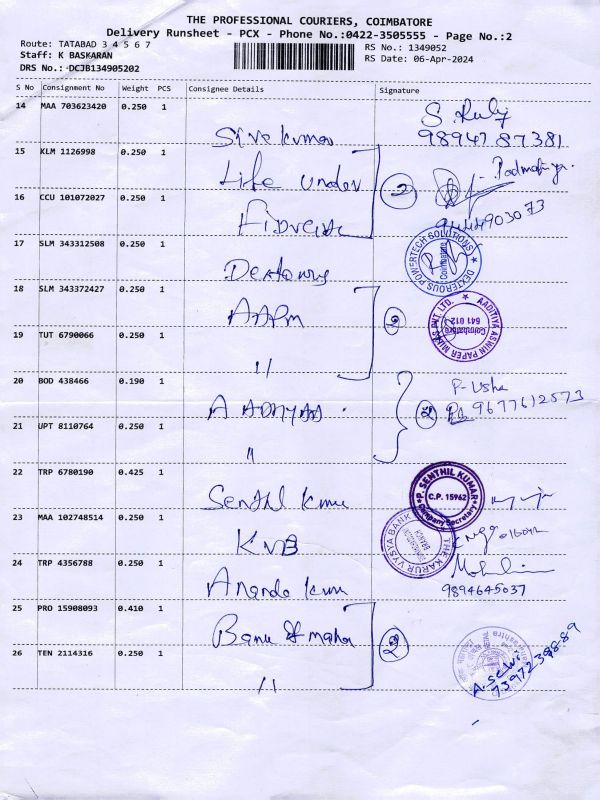 THE PROFESSIONAL COURIERS, COIMBATORE
Delivery Runsheet - PCX - Phone No.:0422-3505555 - Page No.:2
Route: TATABAD 3 4 5 6 7
RS No.: 1349052
Staff: K BASKARAN
RS Date: 06-Apr-2024
DRS No.: DCJB134905202
S No Consignment No Weight PCS Consignee Details Signature
14 MAA 703623420 0.250 1
Sivakumar
9894787381
15 KLM 1126998 0.250 1
Life under 2
16 CCU 101072027 0.250 1
17 SLM 343312508 0.250 1
DEXTEROUS POWERTECH SOLUTIONS Coimbatore
18 SLM 343372427 0.250 1
AAPM 2
AADITIYA ASWIN PAPER MILLS PVT. LTD. Coimbatore 641 012
19 TUT 6790066 0.250 1
"
20 BOD 438466 0.190 1
P-Usha
2 9677612573
21 UPT 8110764 0.250 1
"
22 TRP 6780190 0.425 1
Senthil Kumar
P. SENTHIL KUMAR C.P. 15962 Company Secretary
23 MAA 102748514 0.250 1
KVB
THE KARUR VYSYA BANK BRANCH
24 TRP 4356788 0.250 1
Ananda Kumar
9894645037
25 PRO 15908093 0.410 1
Bank of maha 2
26 TEN 2114316 0.250 1
"
A. Selvi